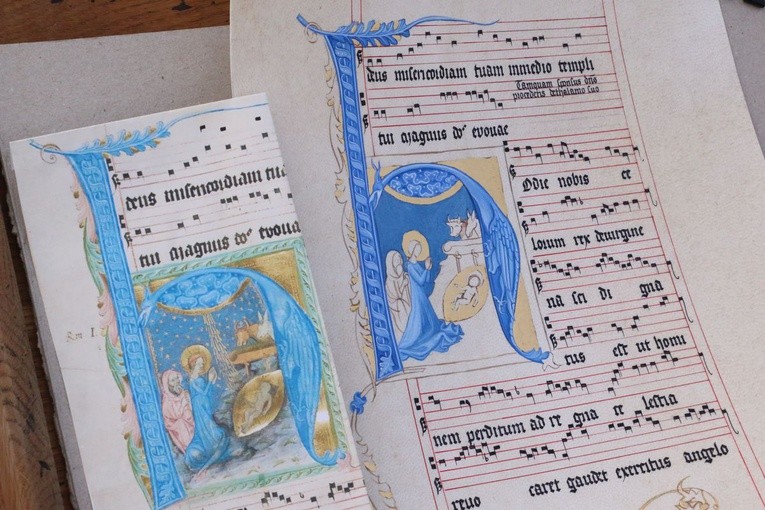 deus misericordiam tua
tui magnus do' evoua
deus misericordiam tuam inmedio templi
Tamquam sponsus dns
procedens dethalamo suo
tui magnus do' evouae
Odie nobis ce
lorum rex devirgine
na sci di gna
tus est ut homi
nem perditum ad re gna ce lestia
revo caret gaudet exercitus angelo